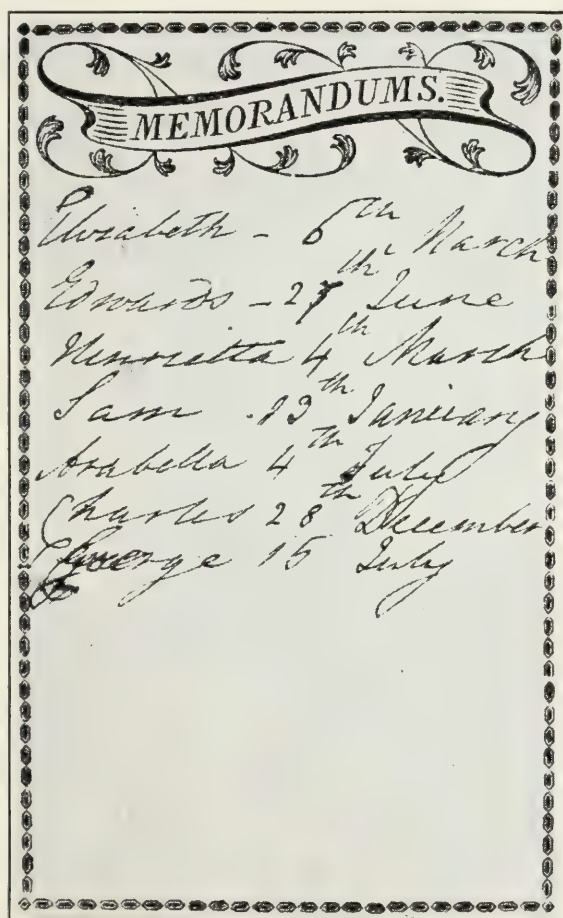 MEMORANDUMS.
Elizabeth - 6th March
Edwards - 27th June
Henrietta 4th March
Sam 13th January
Arabella 4th July
Charles 28th December
George 15 July